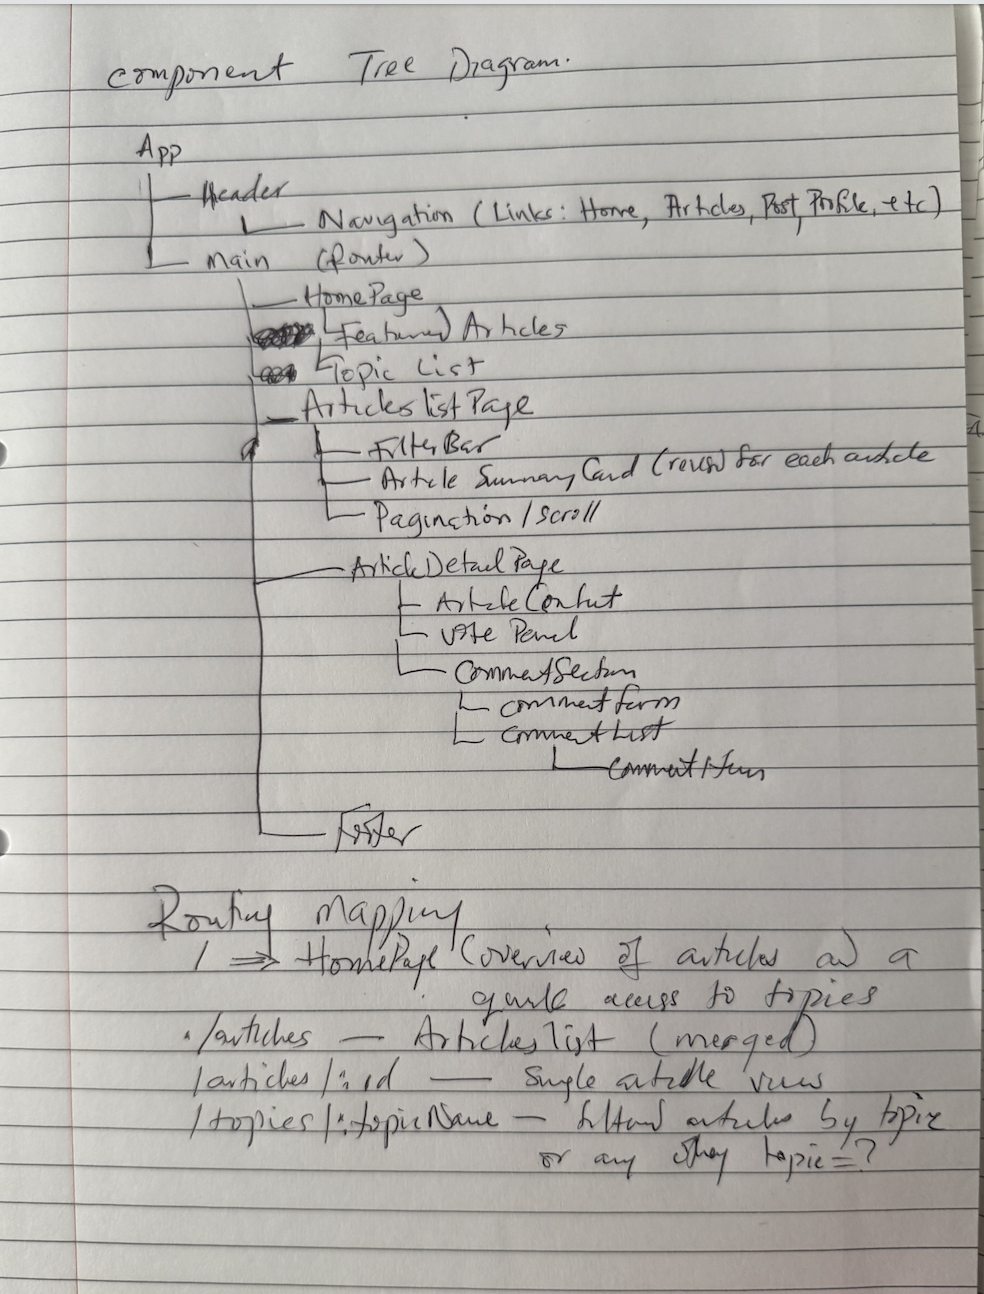 Component Tree Diagram.
App
Header
Navigation (Links: Home, Articles, Post, Profile, etc)
Main (Router)
HomePage
Featured Articles
Topic List
Articles list Page
FilterBar
Article Summary Card (reuse) for each article
Pagination / scroll
ArticleDetail Page
ArticleContent
Vote Panel
CommentSection
comment form
comment List
comment Item
Footer
Routing mapping
/ ⇒ HomePage (overview of articles and a
quick access to topics
/articles — Articles list (merged)
/articles/:id — Single article view
/topics/:topicName — filtered articles by topic
or any topic=?